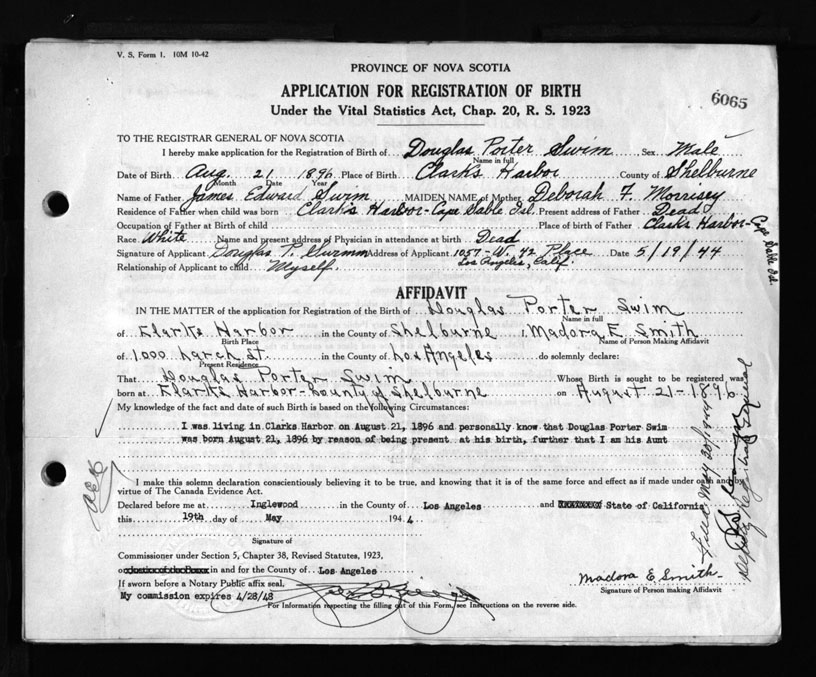 V. S. Form 1. 10M 10-42
PROVINCE OF NOVA SCOTIA
APPLICATION FOR REGISTRATION OF BIRTH
Under the Vital Statistics Act, Chap. 20, R. S. 1923
6065
TO THE REGISTRAR GENERAL OF NOVA SCOTIA
I hereby make application for the Registration of Birth of Douglas Porter Swim Sex Male
Name in full
Date of Birth Aug. 21 1896 Place of Birth Clarks Harbor County of Shelburne
Month Date Year
Name of Father James Edward Swim MAIDEN NAME of Mother Deborah F. Morrisey
Residence of Father when child was born Clark's Harbor-Cape Sable Isl. Present address of Father Dead
Occupation of Father at Birth of child Place of birth of Father Clarks Harbor-Cape Sable Isl.
Race White Name and present address of Physician in attendance at birth Dead
Signature of Applicant Douglas P. Address of Applicant 1057-W. 42 Place Date 5/19/44
Los Angeles, Calif.
Relationship of Applicant to child Myself.
AFFIDAVIT
IN THE MATTER of the application for Registration of the Birth of Douglas Porter Swim
Name in full
of Clarks Harbor in the County of Shelburne I, Madora E. Smith
Birth Place Name of Person Making Affidavit
of 1000 Larch St. in the County of Los Angeles do solemnly declare:
Present Residence
That Douglas Porter Swim Whose Birth is sought to be registered was
born at Clarks Harbor-County of Shelburne on August 21-1896
My knowledge of the fact and date of such Birth is based on the following Circumstances:
I was living in Clarks Harbor on August 21, 1896 and personally know that Douglas Porter Swim
was born August 21, 1896 by reason of being present at his birth, further that I am his Aunt
I make this solemn declaration conscientiously believing it to be true, and knowing that it is of the same force and effect as if made under oath and by
virtue of The Canada Evidence Act.
Declared before me at Inglewood in the County of Los Angeles and State of California
this 19th day of May 1944
Signature of
Commissioner under Section 5, Chapter 38, Revised Statutes, 1923,
in and for the County of Los Angeles
If sworn before a Notary Public affix seal,
My commission expires 4/28/48
Madora E. Smith
Signature of Person making Affidavit
For Information respecting the filling out of this Form, see Instructions on the reverse side.
Filed May 20/1944
Deputy Registrar General